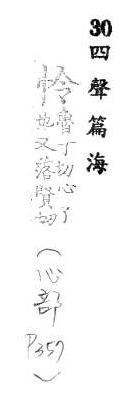 30四聲篇海
怜魯丁切心了
也又落賢切
(心部P357)